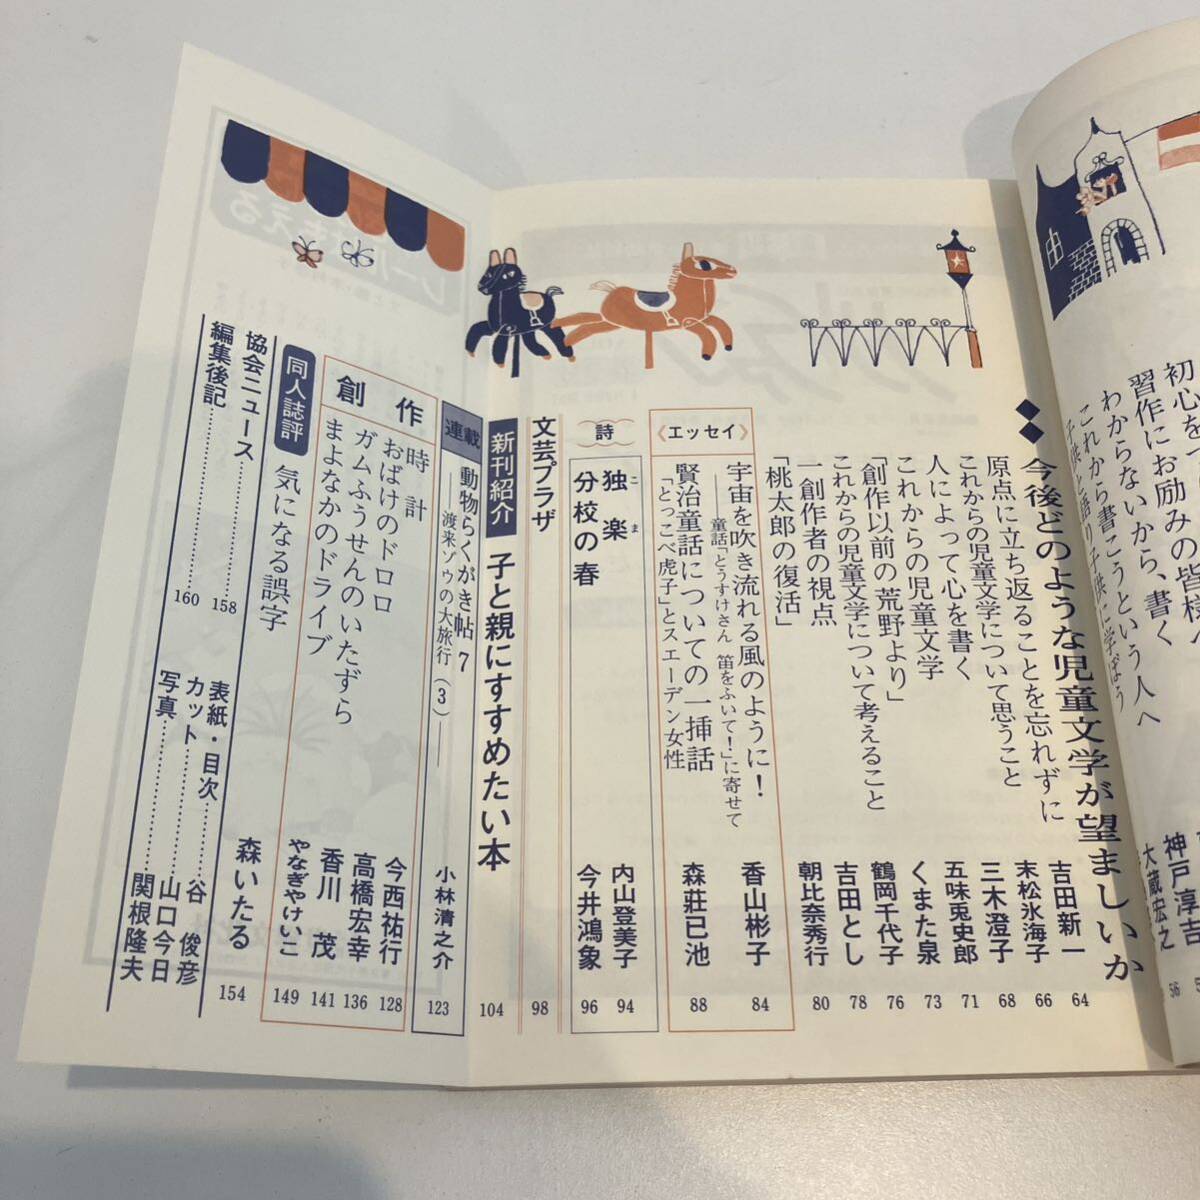 初心を
習作にお励みの皆様へ
わからないから、書く
これから書こうという人へ
子供と語り子供に学ぼう
神戸淳吉
大蔵宏之
56
今後どのような児童文学が望ましいか
原点に立ち返ることを忘れずに
吉田新一
64
これからの児童文学について思うこと
末松氷海子
66
人によって心を書く
三木澄子
68
これからの児童文学
五味兎史郎
71
「創作以前の荒野より」
くまた泉
73
これからの児童文学について考えること
鶴岡千代子
76
一創作者の視点
吉田とし
78
「桃太郎の復活」
朝比奈秀行
80
《エッセイ》
宇宙を吹き流れる風のように!
——童話「とうすけさん 笛をふいて!」に寄せて
香山彬子
84
賢治童話についての一挿話
「とっこべ虎子」とスエーデン女性
森荘已池
88
詩
独楽
こま
内山登美子
94
分校の春
今井鴻象
96
文芸プラザ
98
新刊紹介
子と親にすすめたい本
104
連載
動物らくがき帖 7
——渡来ゾウの大旅行(3)——
小林清之介
123
創作
時計
今西祐行
128
おばけのドロロ
高橋宏幸
136
ガムふうせんのいたずら
香川 茂
141
まよなかのドライブ
やなぎやけいこ
149
同人誌評
気になる誤字
森いたる
154
協会ニュース
158
編集後記
160
表紙・目次
谷 俊彦
カット
山口今日
写真
関根隆夫